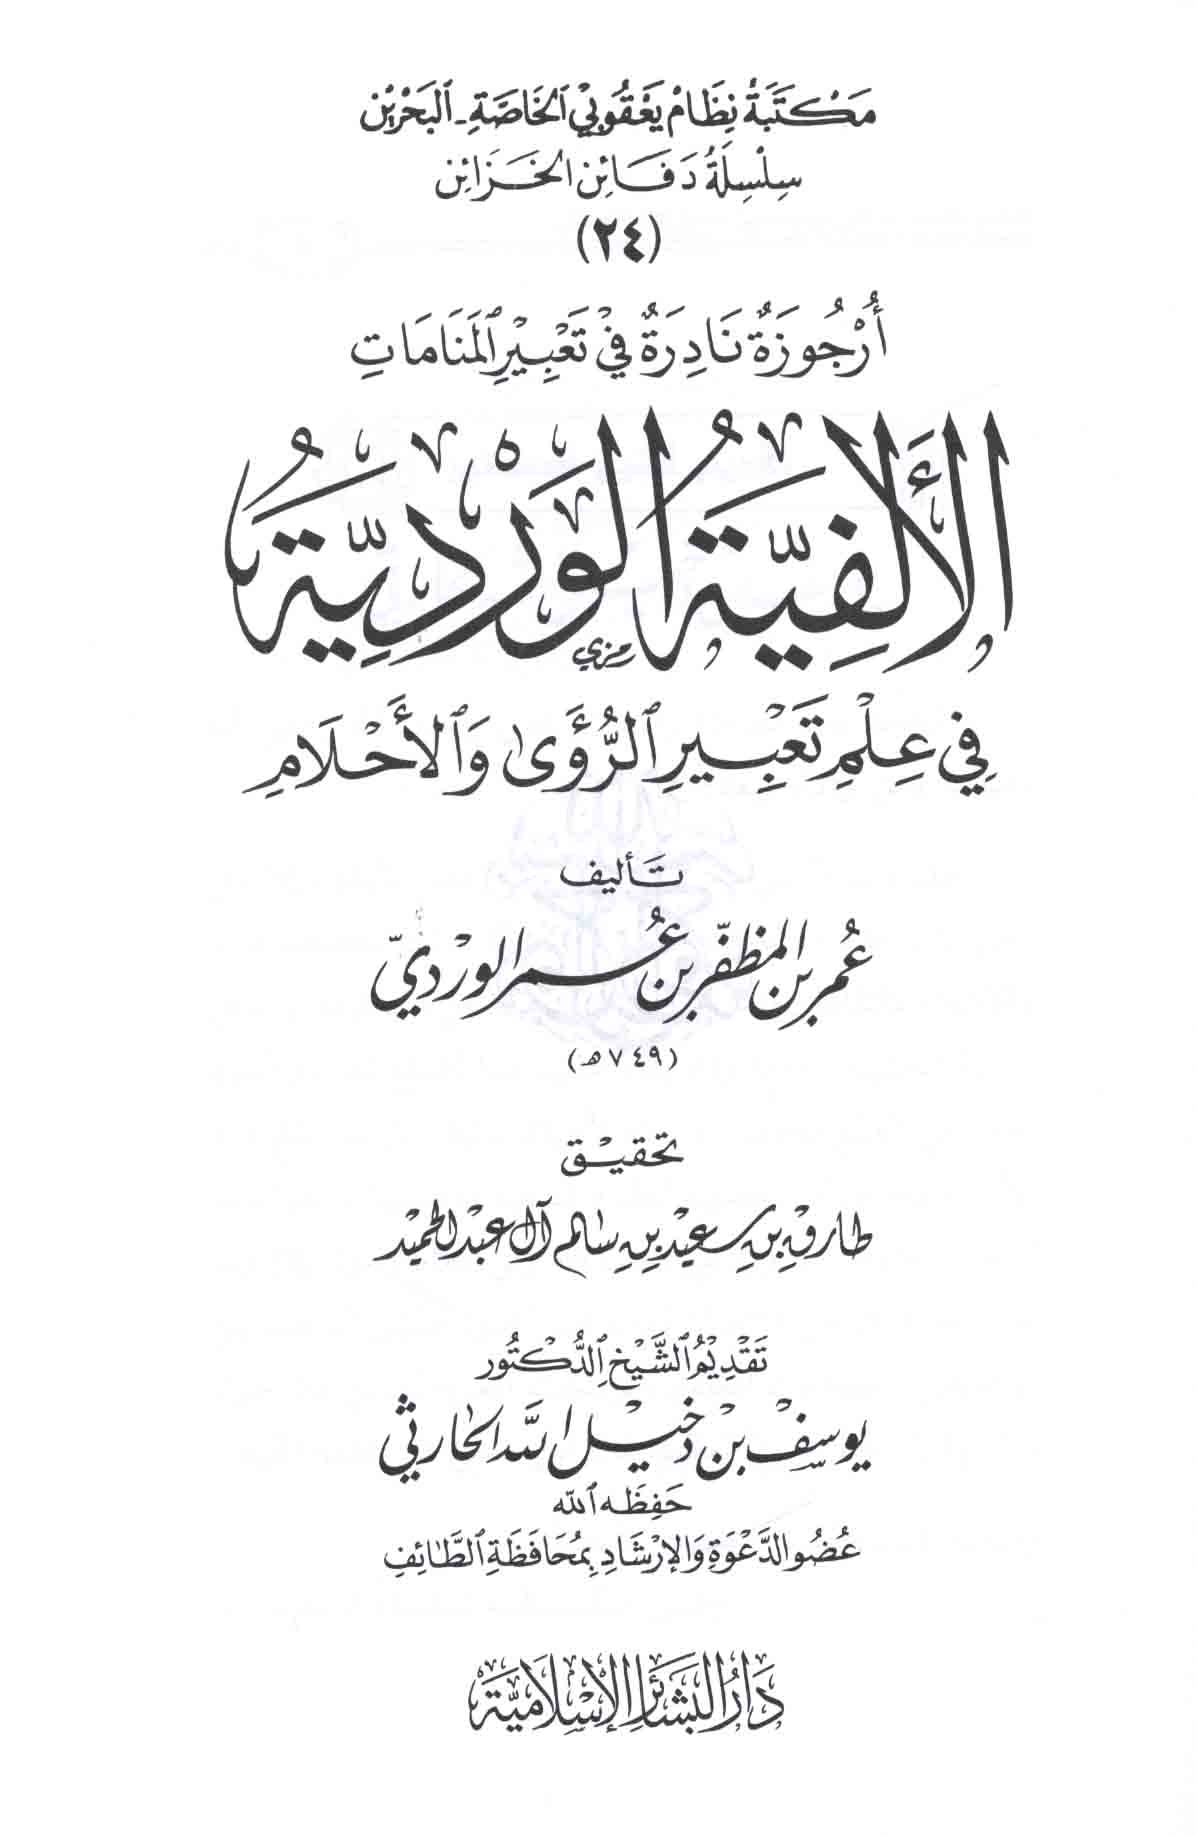 مَكْتَبَةُ نِظَام يَعْقُوبِي الخَاصَّةِ - البَحْرَيْن
سِلْسِلَةُ دَفَائِن الخَزَائِن
(٢٤)
أُرْجُوزَةٌ نَادِرَةٌ فِي تَعْبِيْرِ المَنَامَاتِ
الأَلْفِيَّةُ الوَرْدِيَّةُ
فِي عِلْمِ تَعْبِيرِ الرُّؤَىٰ وَالأَحْلَامِ
تَأليف
عُمر بن المظفّر بن عُمر الوَرْديّ
(٧٤٩ هـ)
تحقيق
طارق بن سعيد بن سالم آل عبد الحميد
تَقْدِيْمُ الشَّيْخِ الدُّكْتُور
يوسف بن دخيل الله الحارثي
حَفِظَه الله
عُضُو الدَّعْوَةِ وَالإرْشَادِ بِمُحَافَظَةِ الطَّائِفِ
دَارُ البَشَائِر الإِسْلَامِيَّة